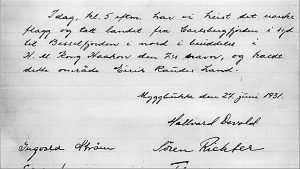 Idag, kl. 5 eftm. har vi heist det norske
flagg og tatt landet fra Carlsbergfjorden i syd
til Besselfjorden i nord i besiddelse i
H. M. Kong Haakon den 7des navn, og kaldt
dette område Eirik Raudes Land.
Myggbukta den 27. juni 1931.
Hallvard Devold
Ingvald Strøm Søren Richter